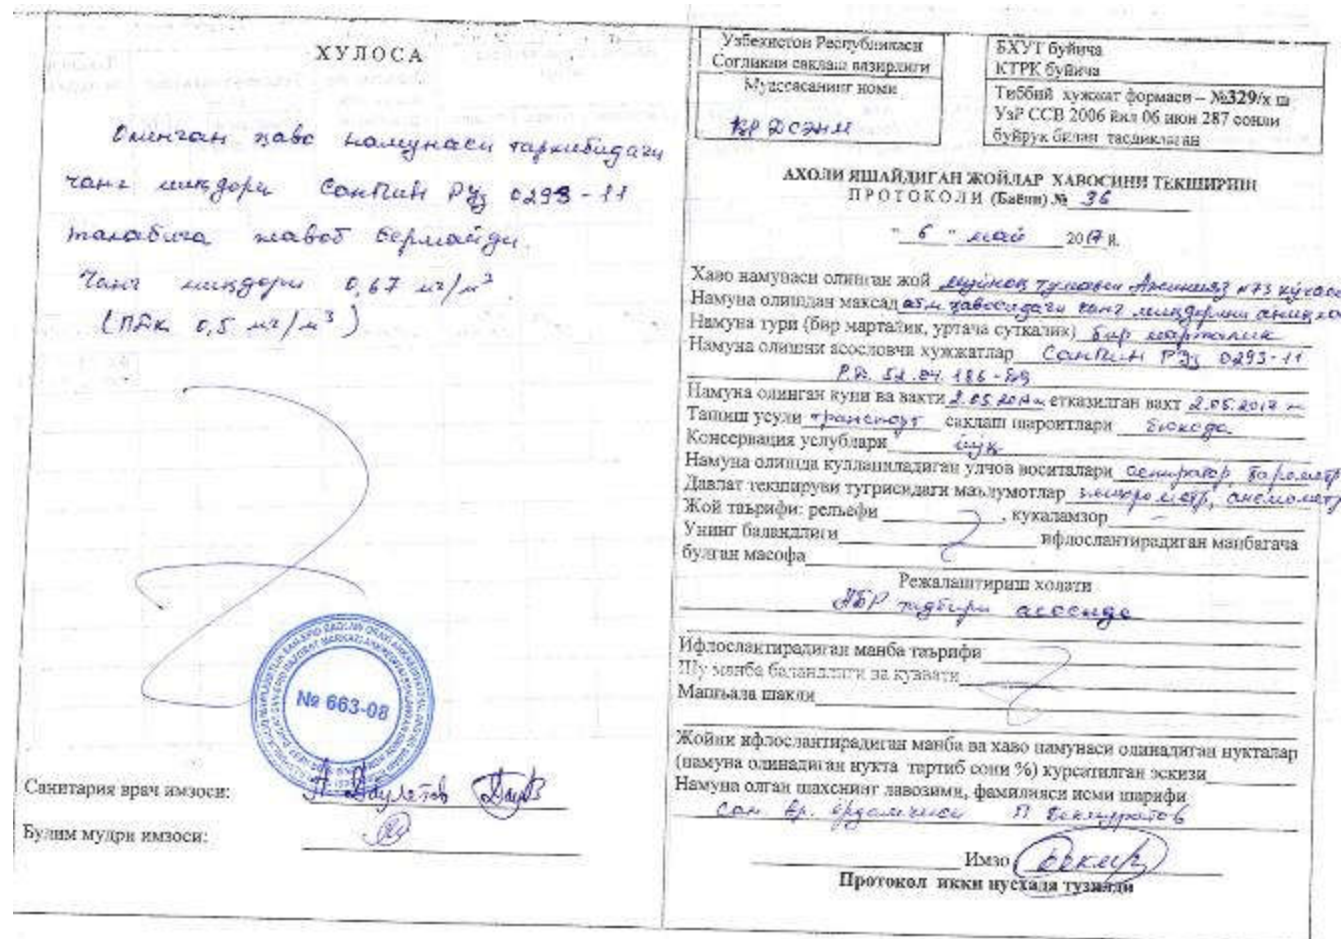 ХУЛОСА
Олинган ҳаво намунаси таркибидаги
чанг миқдори СанПиН РУз 0293-11
талабига жавоб бермайди.
Чанг миқдори 0,67 мг/м³
(ПДК 0,5 мг/м³)
№ 663-08
Санитария врач имзоси: Даулетов
Булим мудри имзоси:
Узбекистон Республикаси
Согликни саклаш вазирлиги
Муассасанинг номи
ҚР ДСЭНМ
БХУТ буйича
КТРК буйича
Тиббий хужжат формаси – №329/х ш
УзР ССВ 2006 йил 06 июн 287 сонли
буйрук билан тасдикланган
АХОЛИ ЯШАЙДИГАН ЖОЙЛАР ХАВОСИНИ ТЕКШИРИШ
ПРОТОКОЛИ (Баёни) № 36
" 6 " май 2017 й.
Хаво намунаси олинган жой муйноқ тумани №73
Намуна олишдан максад атм. ҳавосидаги чанг миқдорини
Намуна тури (бир марталик, уртача суткалик) бир марталик
Намуна олишни асословчи хужжатлар СанПиН РУз 0293-11
Р.Д. 52.04.186-89
Намуна олинган куни ва вакти 2.05.2017 етказилган вакт 2.05.2017
Ташиш усули транспорт саклаш шароитлари
Консервация услублари йўқ
Намуна олишда кулланиладиган улчов воситалари аспиратор, барометр
Давлат текшируви тугрисидаги маълумотлар анемометр
Жой таърифи: рельефи , кукаламзор –
Унинг баландлиги ифлослантирадиган манбагача
булган масофа
Режалаштириш холати
асосида
Ифлослантирадиган манба таърифи
Шу манба баландлиги ва куввати
Машъала шакли
Жойни ифлослантирадиган манба ва хаво намунаси олинадиган нукталар
(намуна олинадиган нукта тартиб сони %) курсатилган эскизи
Намуна олган шахснинг лавозими, фамилияси исми шарифи
Сан. вр. ёрдамчиси П Бекмуратов
Имзо
Протокол икки нусхада тузилди